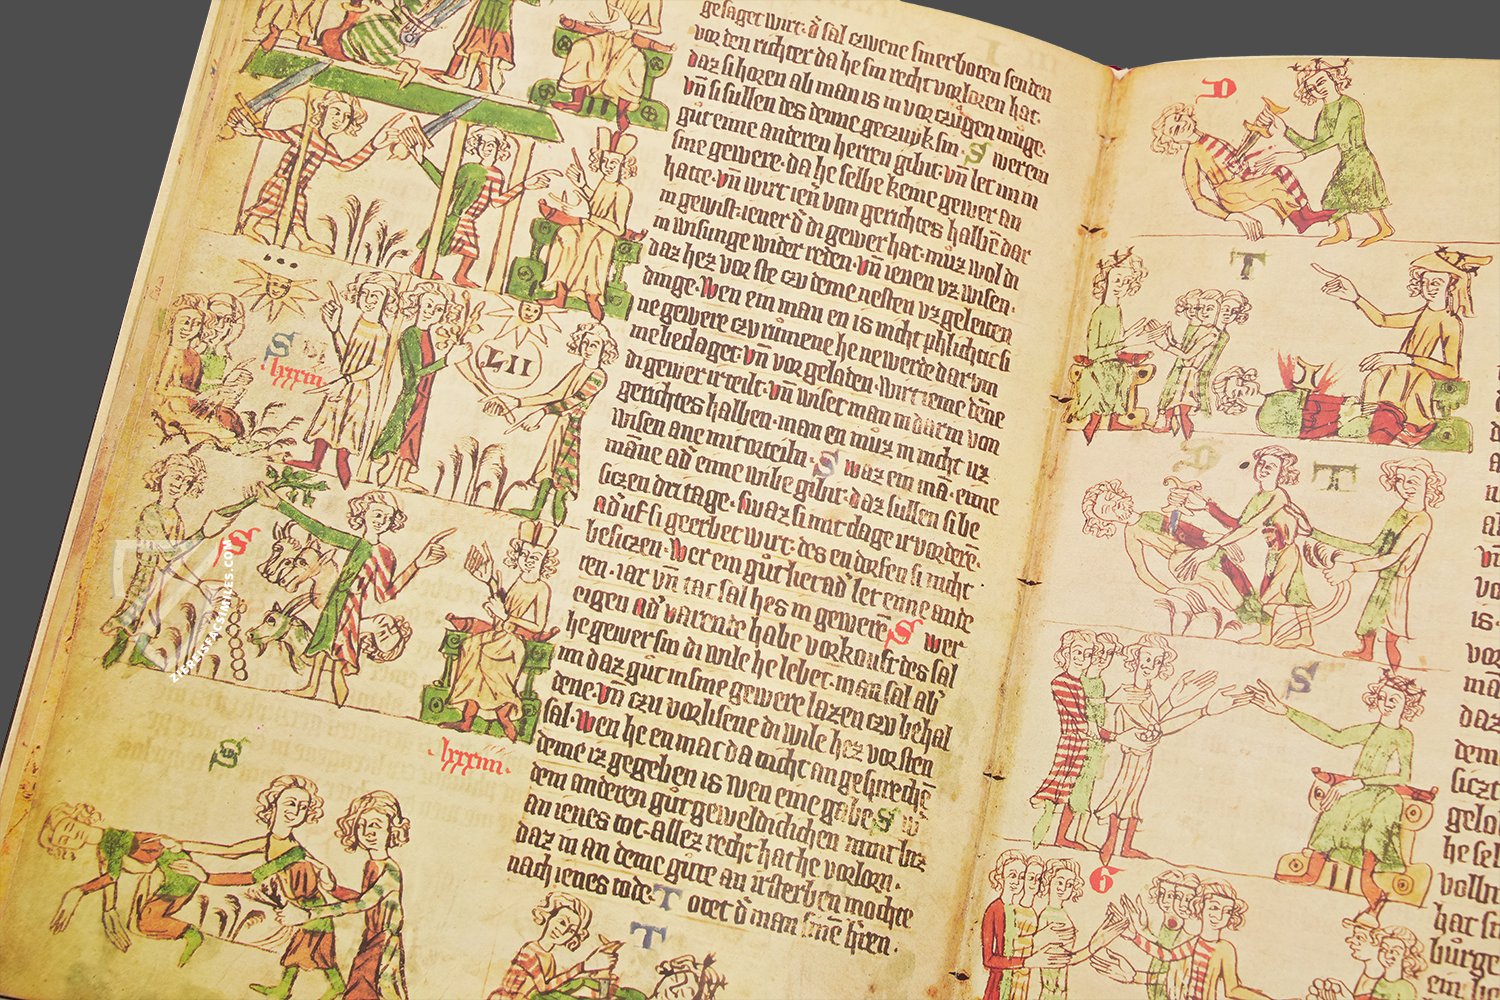 gesaget wirt· d̄ sal czwene sine boten senden
vor den richter da he sin recht vorloren hat·
daz si horen ab man is in vorzůgen můge·
vn̄ si sullen des denne geczuyk sin· S werein
gůt enne anderen herren gibit· vn̄ let im in
sine gewere· da he selbe keine gewer an
hatte· vn̄ wirt ien̄ von gerichtes halbē dar
in gewist· iener d̄ di gewer hat· můz wol di
in wisunge wider reden· vn̄ ienen vz wisen·
daz hez vor ste czu deme nesten vz geleiten
dinge· Wen ein man en is nicht phlichtic si
ne gewere czu rumene he ne werde dar um
me beclaget· vn̄ vor geladen· Wirt ieme dēne
di gewer ir teilt· vn̄ wiset man in dar in von
gerichtes halben· man en můz in nicht uz
wisen ane mit orteiln· S waz ein mā eime
māne ad̄ enne wibe gibit· daz sullen si be
siczen dri tage· Swaz si mit clage ir vorderē·
ad̄ uf si geerbet wirt· des en dorfen si nicht
besiczen· Wer ein gůt her ad̄ let enne ande
ren· iar vn̄ tac sal hes in gewerē S wer
eigen ad̄ varende habe vorkouft des sal
he gewer sin di wile he lebet· man sal ab̄
im daz gůt in sine gewere lazen czu behal
dene· vn̄ czu vorlisene di wile hez vor sten
sal· Wen he en mac da nicht an gesprechē
deme iz gegeben is wen eine gabe· S w
dem anderen gůt geweldiclichen nimt biz
an ienes tot· allez recht hat he vorlorn·
daz in an deme gůte an irsterben mochte
nach ienes tode· T otet d̄ man sinē h̄ren·
S
lxxxiii
LII
S
lxxxiiii·
S
T
D
T
D
T
S
G
ZIEREISFACSIMILES.COM